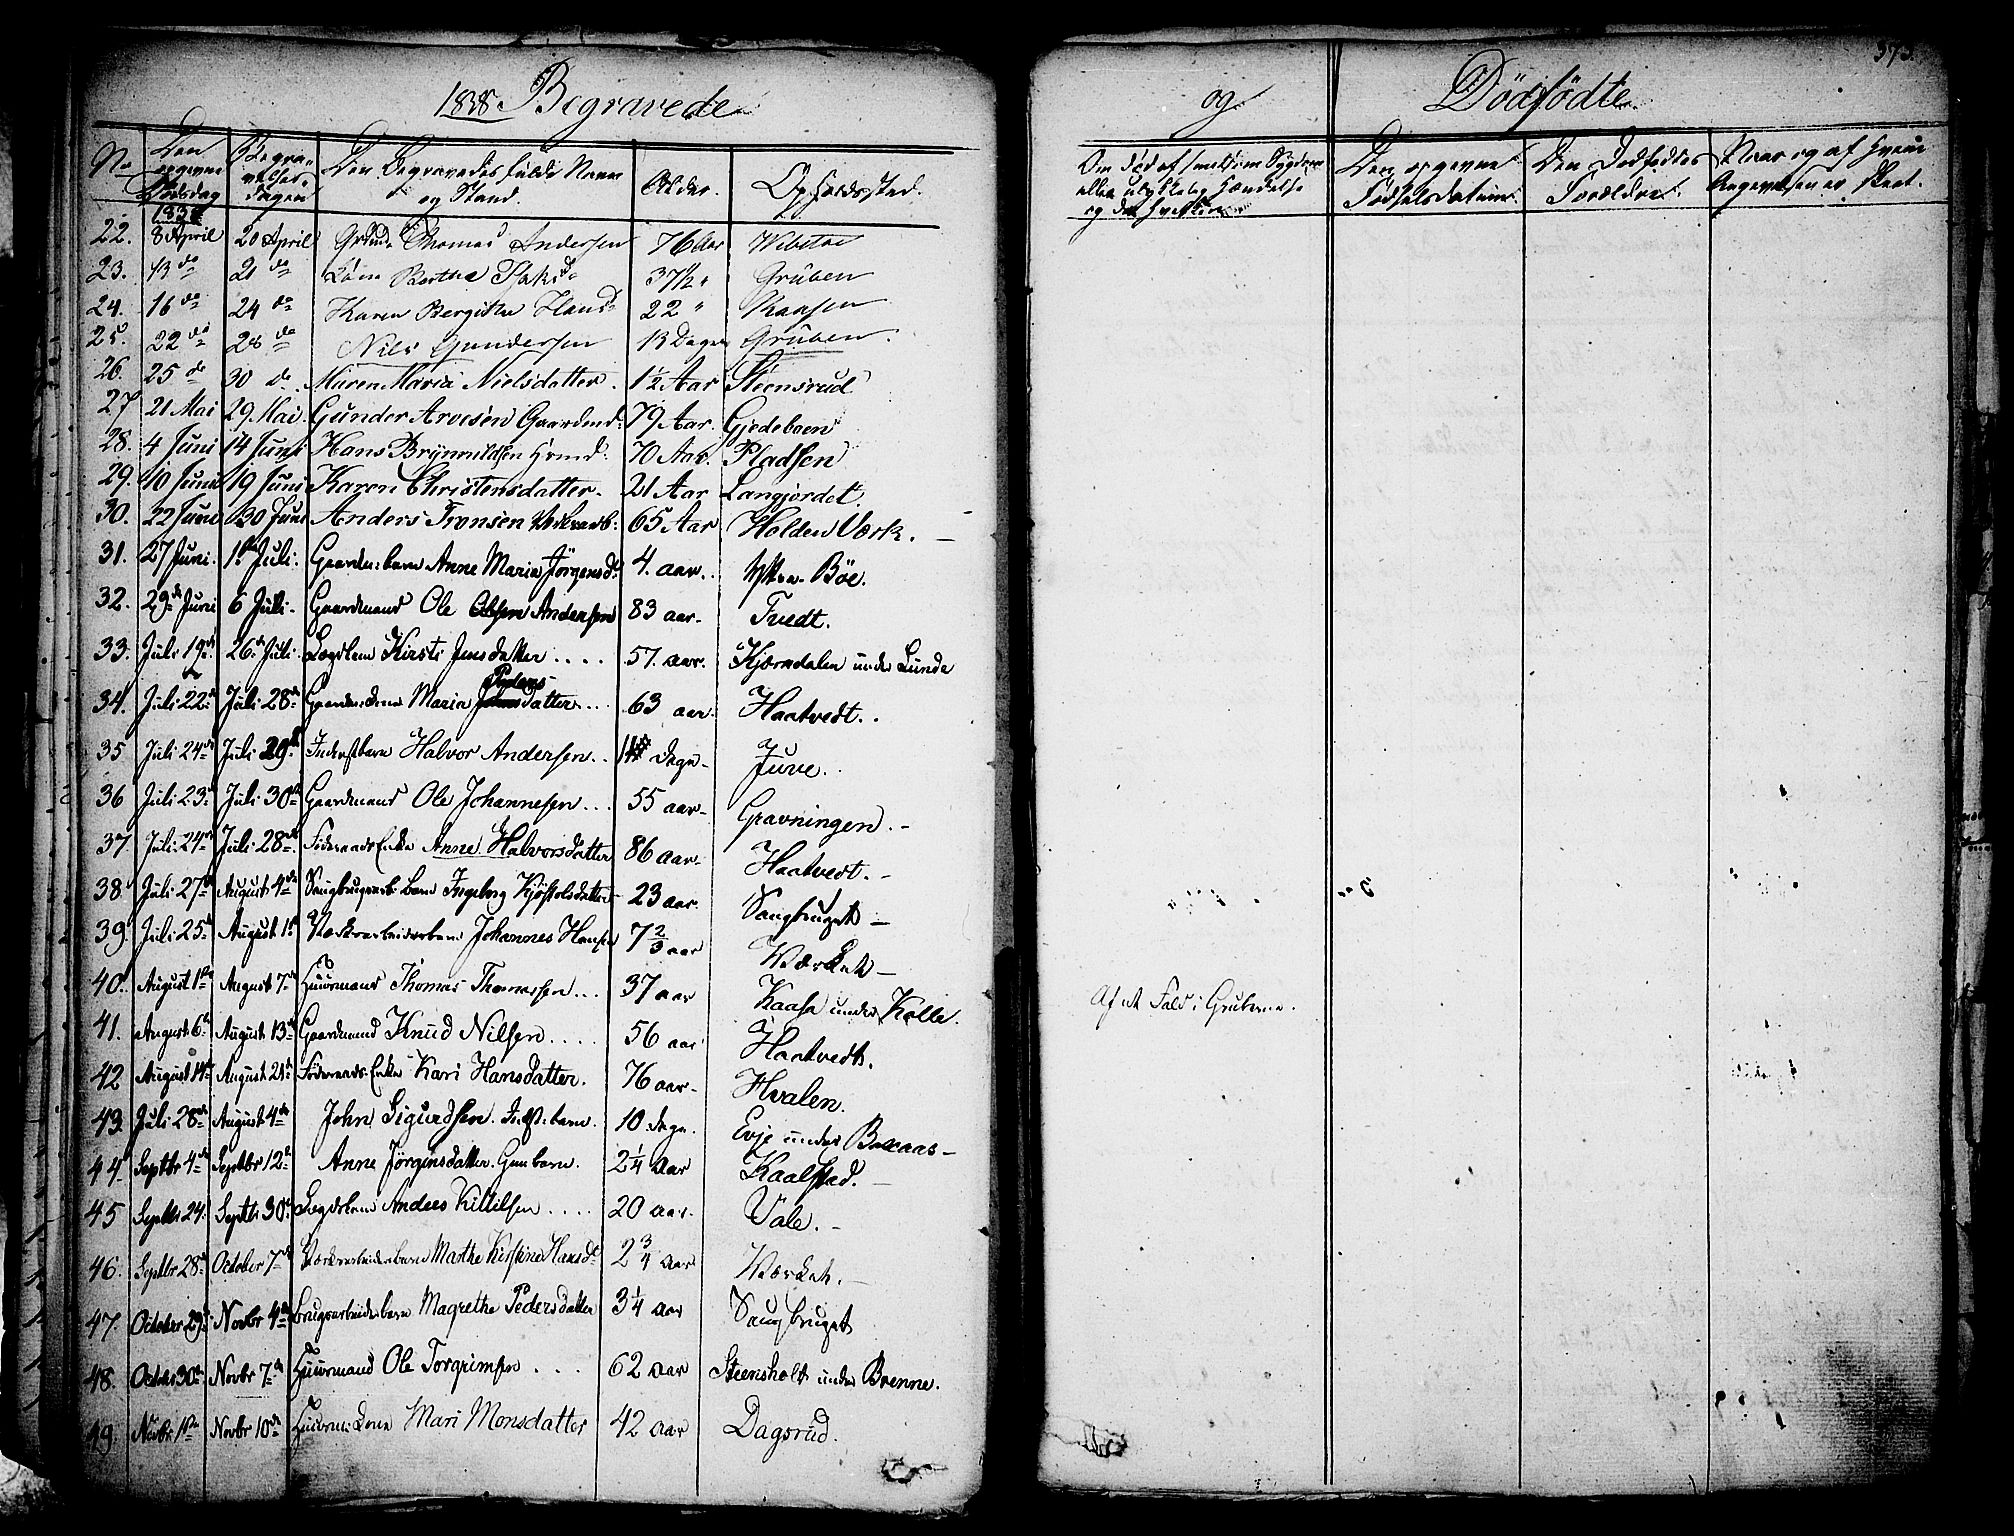 1838 Begravede
No
Den opgevne Dødsdag
Begravelses-dagen
Den Begravedes fulde Navn og Stand.
Alder.
Opholdssted.
22. 8 April 20 April Thomas Andersen 76 Aar
23. 13 do 21 do Kone Berthe 37½ " Gruben
24. 16 do 24 do Karen Bergithe Hansd. 22 " Kaasen
25. 22 do 28 do Nils Gundersen 13 Dage Gruben.
26. 25 do 30 do Maren Maria Nielsdatter. 1½ Aar Steensrud
27 21 Mai 29 Mai. Gunder Arvesen Gaardmd: 79 Aar. Gjedeboen
28. 4 Juni 14 Juni Hans Brynnuldsen Hsmd: 70 Aar. Pladsen
29. 10 Juni 19 Juni Karen Christensdatter. 21 Aar Langjordet.
30. 22 Juni 30 Juni Anders Tronsen Værksarb: 65 Aar Holden Værk.
31. 27 Juni. 1ste Juli. Gaardm: barn Anne Maria Jörgensd. 4. aar. Ytter Böe.
32. 29de Juni 6 Juli. Gaardmand Ole Andersen 83 aar. Tvedt.
33. Juli 19de 26de Juli. Lægdslem Kirsti Jensdatter .... 57. aar. Kjærndalen under Lunde
34. Juli 22de Juli 28de Gaardm: Kone Maria Peders datter... 63 aar. Haatvedt.
35 Juli 24de Juli 29de Inderstbarn Halvor Andersen.. 14 dage Juve.
36 Juli 23de Juli 30te Gaardmand Ole Johannesen... 55 aar Gravningen.
37 Juli 24de Juli 28de Föderaads Enke Anne Halvorsdatter 86 aar. Haatvedt.
38 Juli 27de August 4de Saugbrugsarb: barn Ingeborg Kjöstolsdatter 23 aar. Saugbruget
39. Juli 25de August 1ste Værksarbeiderbarn Johannes Hansen 7⅔ aar Værket
40. August 1ste August 7de Huusmand Thomas Thomassen... 37 aar Kaasa under Kolle.
41. August 6te August 13de Gaardmand Knud Nilsen..... 56 aar Haatvedt.
42 August 14de August 21de Föderaads-Enke Kari Hansdatter. 76 aar. Hvalen.
43. Juli 28de August 4de John Sigurdsen. Indst: barn. 10 dage. Evje under Bonaas
44 Septbr 4de Septbr 12te Anne Jörgensdatter. Gmbarn. 2¼ Aar Kaalstad.
45 Septbr 24. Septbr 30te Lægdsbarn Anders Kittilsen .... 20 aar. Vale.
46. Septbr 28de October 7de Værksarbeiderbarn Marthe Kirstine Hansd. 2¾ Aar Værket.
47. October 29de Novbr 4de Brugsarbeiderbarn Magrethe Pedersdatter 3¼ aar Saugbruget
48. Octobr 30te Novbr 7de Huusmand Ole Torgrimsen .... 62 aar Steensholt under Brenne.
49. Novbr 1ste Novbr 10de Huusm: Kone Mari Monsdatter 42 aar Dagsrud.
og Dödfödte
373.
Om Död af smitsom Sygdom eller ulykkelig Hændelse og da hvilken
Den opgevne Födselsdatum
Den Dödfödtes Forældre.
Naar og af hvem Angivelsen er skeet.
Af et Fald i Gruberne.